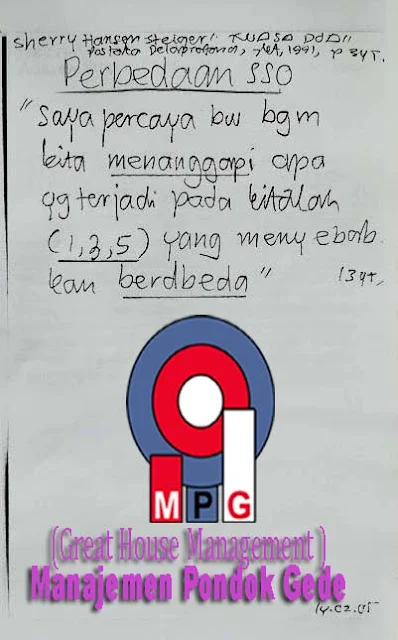 Sherry Hansen Steiger: "KUASA DOA"
Pustaka Delapratasa, 1991, p 34t.
Perbedaan SSO
"Saya percaya bw bgm
kita menanggapi apa
yg terjadi pada kitalah
(1,3,5) yang menyebab
kan berdbeda"
MPG
(Great House Management )
Manajemen Pondok Gede
14.02.05